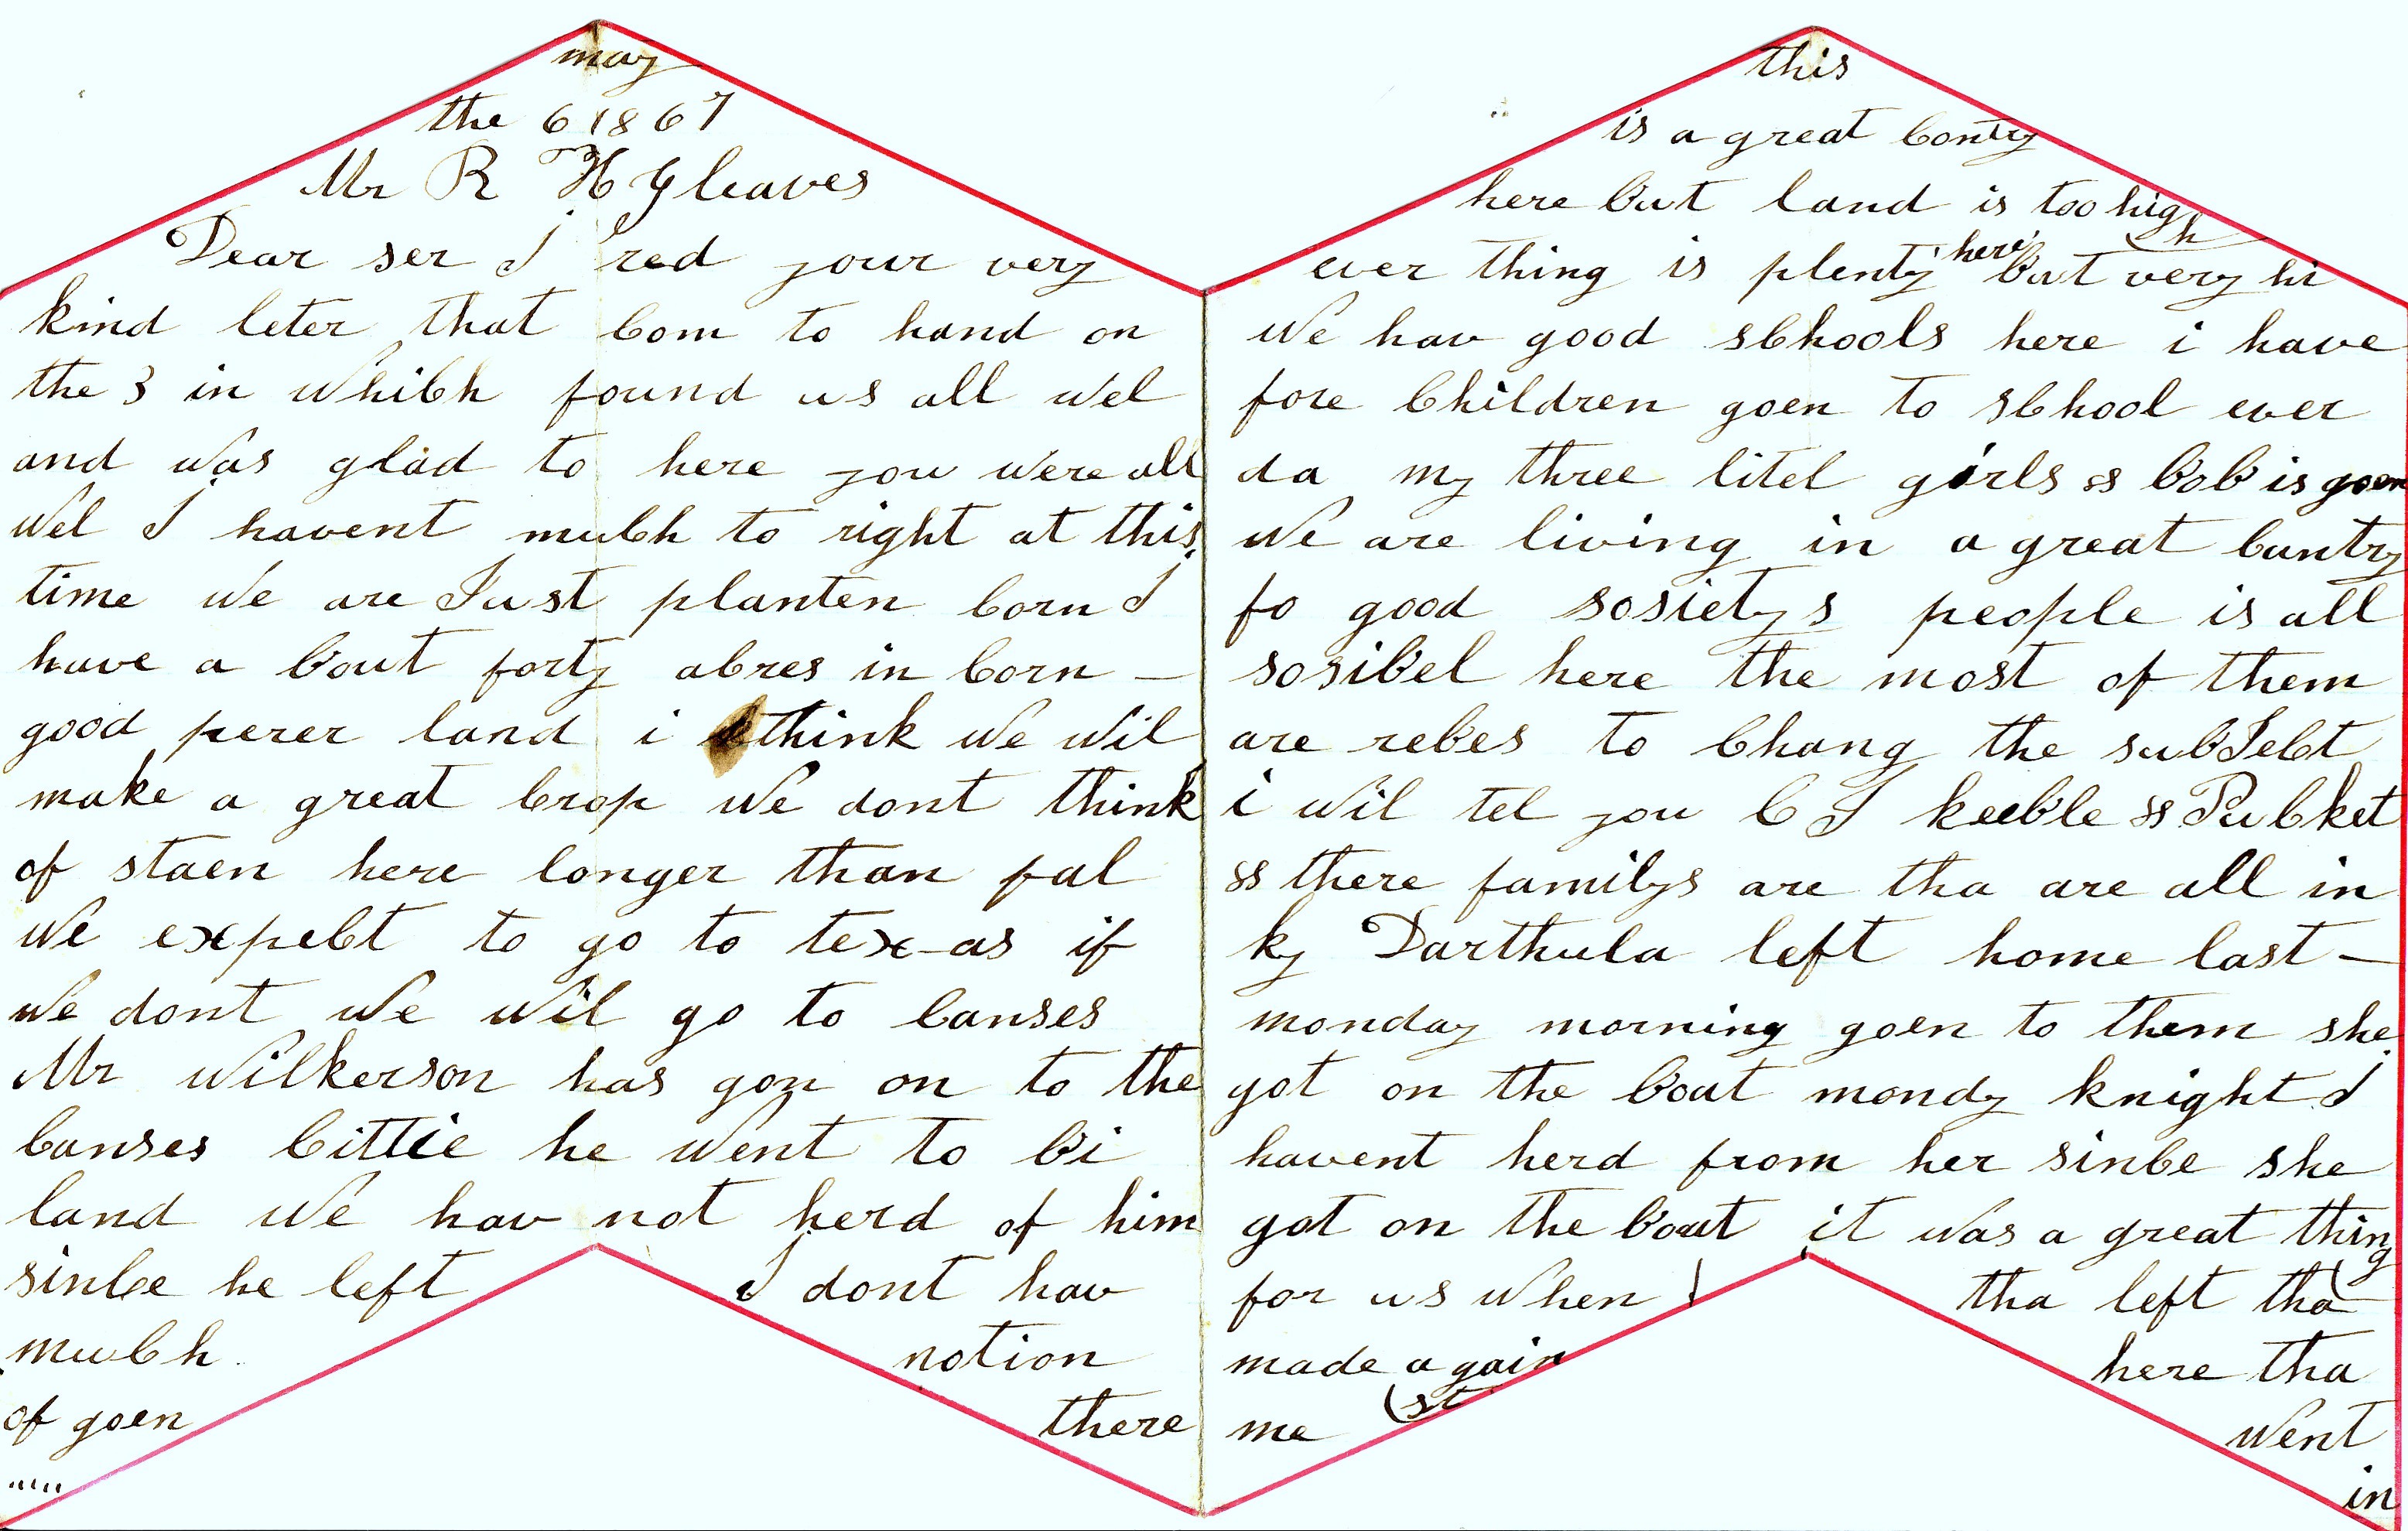 may
the 6 1867
Mr R H Gleaves
Dear ser I red your very
kind leter that com to hand on
the 3 in which found us all wel
and was glad to here you were all
wel I havent much to right at this
time we are Just planten corn I
have a bout forty acres in corn —
good perer land i think we wil
make a great crop we dont think
of staen here longer than fal
we expect to go to tex-as if
we dont we wil go to canses
Mr wilkerson has gon on to the
canses cittie he went to bi
land we hav not herd of him
since he left I dont hav
much notion
of goen there
this
is a great contry
here but land is too high
ever thing is plenty here but very hi
we hav good schools here i have
fore children goen to school ever
da my three litel girls & bob is goen
we are living in a great cuntry
fo good sosietys people is all
sosibel here the most of them
are rebes to chang the subJect
i wil tel you C J keeble & Pucket
& there familys are tha are all in
ky Darthula left home last —
monday morning goen to them she
got on the boat mondy knight I
havent herd from her since she
got on the bout it was a great thing
for us when tha left tha
made against here tha
me went
in